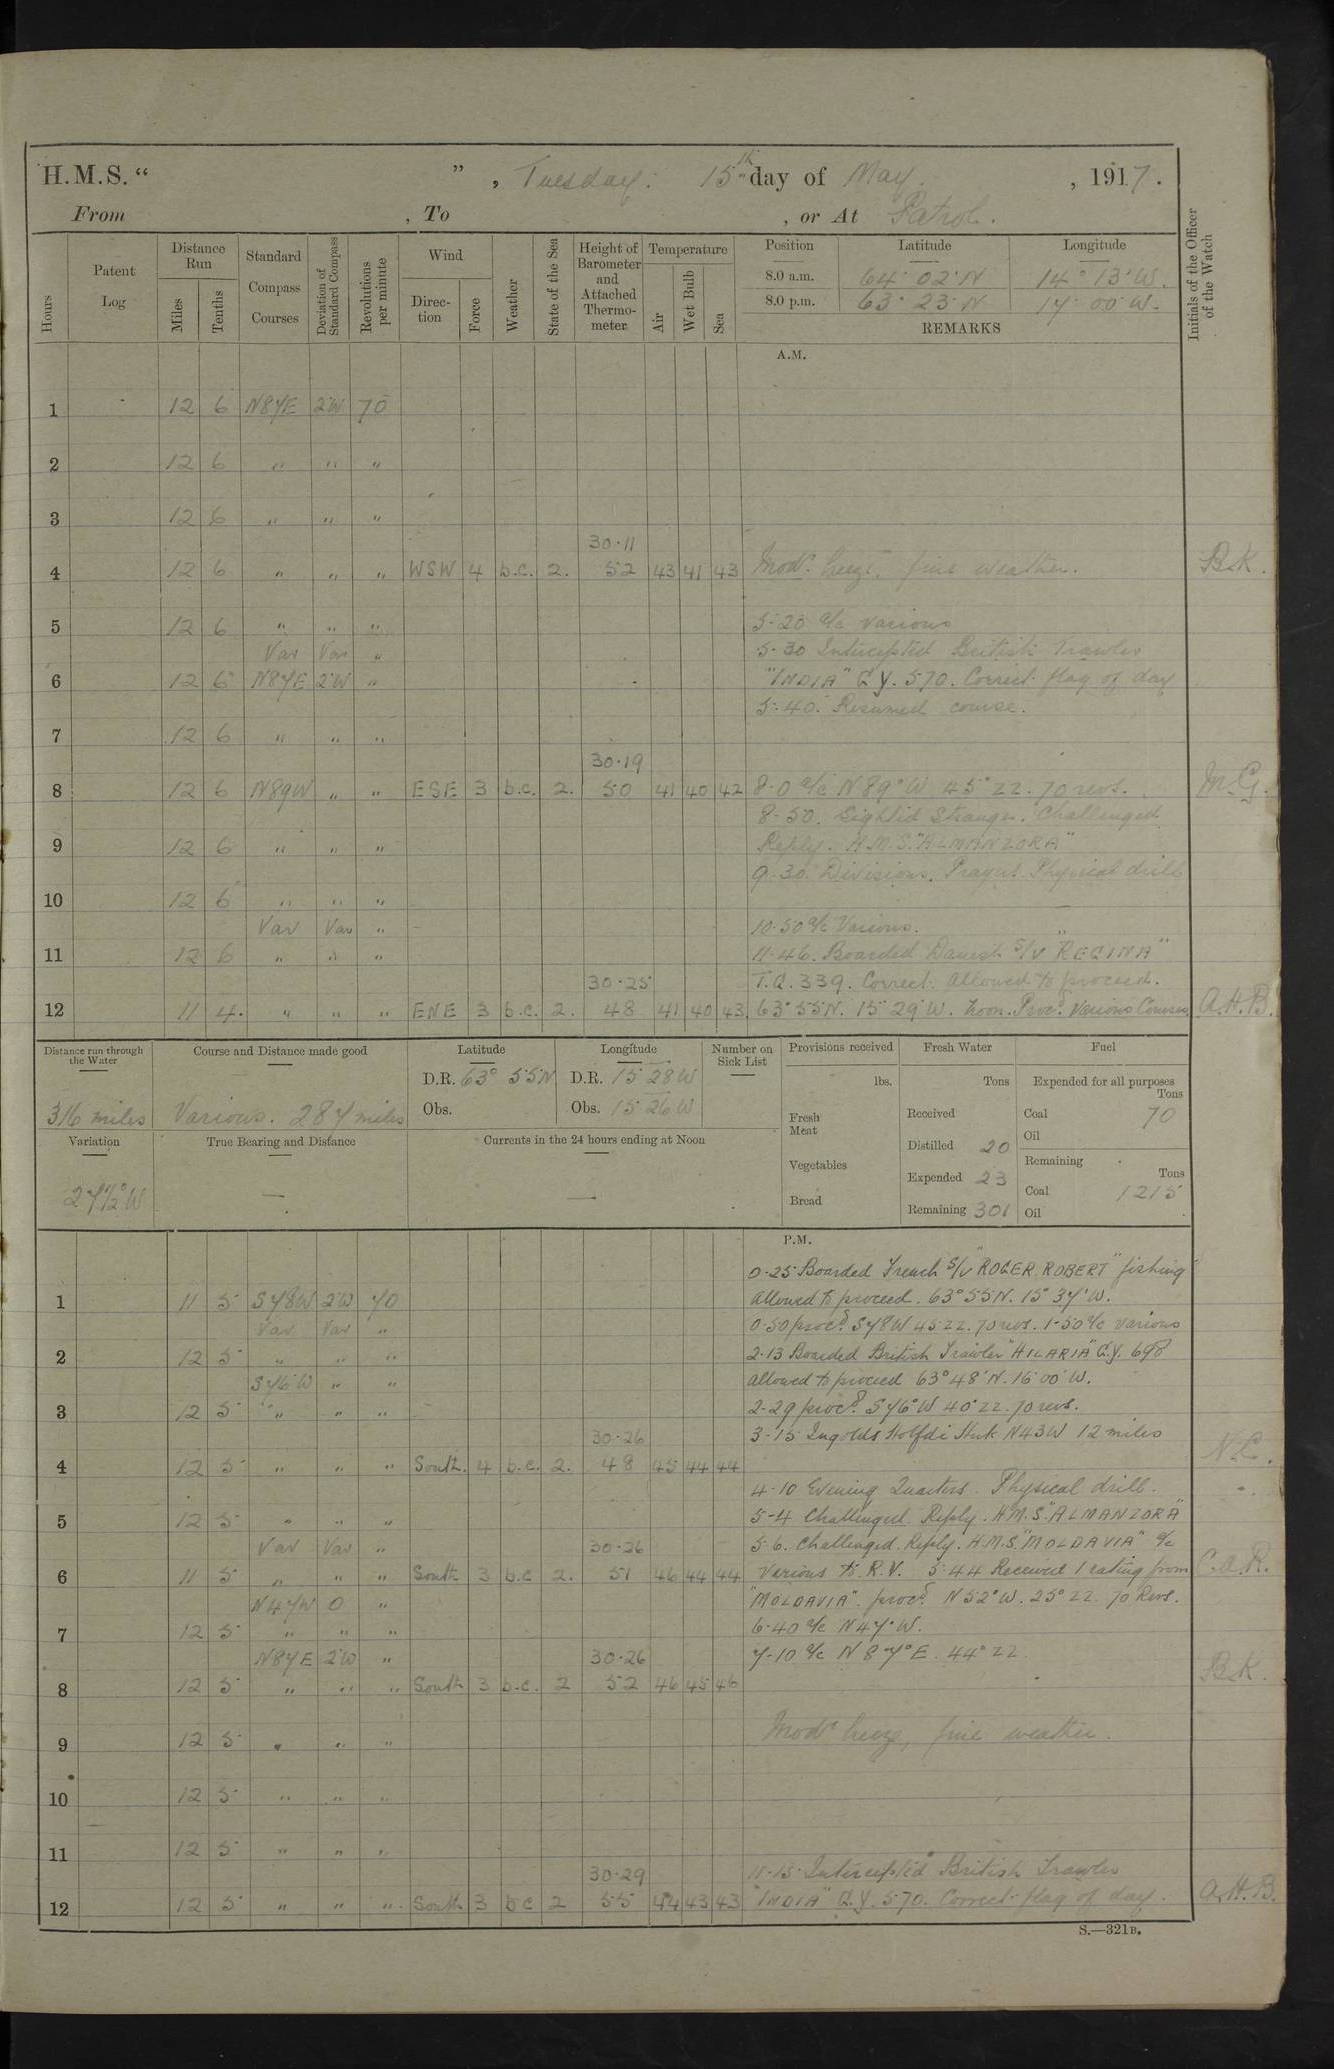 H.M.S. “ ” , Tuesday. 15th day of May. , 1917.
From , To , or At Patrol.
Hours
Patent Log
Distance Run
Miles
Tenths
Standard Compass Courses
Deviation of Standard Compass
Revolutions per minute
Wind
Direction
Force
Weather
State of the Sea
Height of Barometer and Attached Thermometer
Temperature
Air
Wet Bulb
Sea
Position Latitude Longitude
8.0 a.m. 64° 02' N 14° 13' W.
8.0 p.m. 63° 23' N 17° 00' W.
REMARKS
Initials of the Officer of the Watch
A.M.
1 12 6 N87E 2°W 70
2 12 6 " " "
3 12 6 " " "
30.11
4 12 6 " " " WSW 4 b.c. 2. 52 43 41 43 Modte breeze, fine weather. B.K.
5 12 6 " " " 5-20 a/c various
Var Var " 5-30 Intercepted British Trawler
6 12 6 N87E 2°W " "INDIA" G.Y. 570. Correct flag of day
5.40. Resumed course.
7 12 6 " " "
30.19
8 12 6 N89W " " ESE 3 b.c. 2. 50 41 40 42 8-0 a/c N89°W 45° ZZ. 70 revs. M.G.
8-50. Sighted Stranger. Challenged
9 12 6 " " " Reply. H.M.S. "ALMANZORA"
9.30. Divisions. Prayers. Physical drill
10 12 6 " " "
Var Var " 10-50 a/c Various.
11 12 6 " " " 11-46. Boarded Danish S/V "REGINA"
30.25 T.G. 339. Correct. Allowed to proceed.
12 11 4 " " " ENE 3 b.c. 2. 48 41 40 43 63° 55'N. 15° 29'W. Noon. Procd. Various Courses A.H.B.
Distance run through the Water
316 miles
Course and Distance made good
Various. 287 miles
Latitude
D.R. 63° 55N
Obs.
Longitude
D.R. 15 28 W
Obs. 15 26 W
Number on Sick List
Provisions received
lbs.
Fresh Meat
Vegetables
Bread
Fresh Water
Tons
Received
Distilled 20
Expended 23
Remaining 301
Fuel
Expended for all purposes
Tons
Coal 70
Oil
Remaining
Tons
Coal 1215
Oil
Variation
27½° W
True Bearing and Distance
Currents in the 24 hours ending at Noon
P.M.
0-25 Boarded French S/V "ROGER ROBERT" fishing
1 11 5 S78W 2°W 70 allowed to proceed. 63° 55'N. 15° 37' W.
Var Var " 0-50 procd. S78W 45 ZZ. 70 revs. 1-50 a/c various
2 12 5 " " " 2-13 Boarded British Trawler "HILARIA" G.Y. 698
S76°W " " allowed to proceed 63° 48' N. 16° 00' W.
3 12 5 " " " 2-29 procd. S76°W 40° ZZ. 70 revs.
30.26 3-15 Ingolds Hofdi Huk N43W 12 miles
4 12 5 " " " South. 4 b.c. 2. 48 45 44 44 N.L.
4-10 Evening Quarters. Physical drill.
5 12 5 " " " 5-4 Challenged. Reply. H.M.S. "ALMANZORA"
Var Var " 30.26 5-6. Challenged. Reply. H.M.S. "MOLDAVIA" a/c
6 11 5 " " " South 3 b.c 2. 51 46 44 44 various to R.V. 5-44 Received 1 rating from C.A.R.
N47W 0 " "MOLDAVIA". procd. N52°W. 25° ZZ. 70 Revs.
7 12 5 " " " 6-40 a/c N47°W.
N87E 2°W " 30.26 7-10 a/c N87°E. 44° ZZ
8 12 5 " " " South 3 b.c. 2 52 46 45 46 B.K.
9 12 5 " " " Modte breeze, fine weather.
10 12 5 " " "
11 12 5 " " "
30.29 11-15 Intercepted British Trawler
12 12 5 " " " South 3 bc 2 55 44 43 43 "INDIA" G.Y. 570. Correct flag of day. A.H.B.
S.—321B.